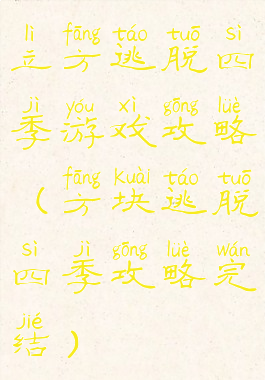 lì fāng táo tuō sì
立方逃脱四
jì yóu xì gōng lüè
季游戏攻略
fāng kuài táo tuō
（方块逃脱
sì jì gōng lüè wán
四季攻略完
jié
结）